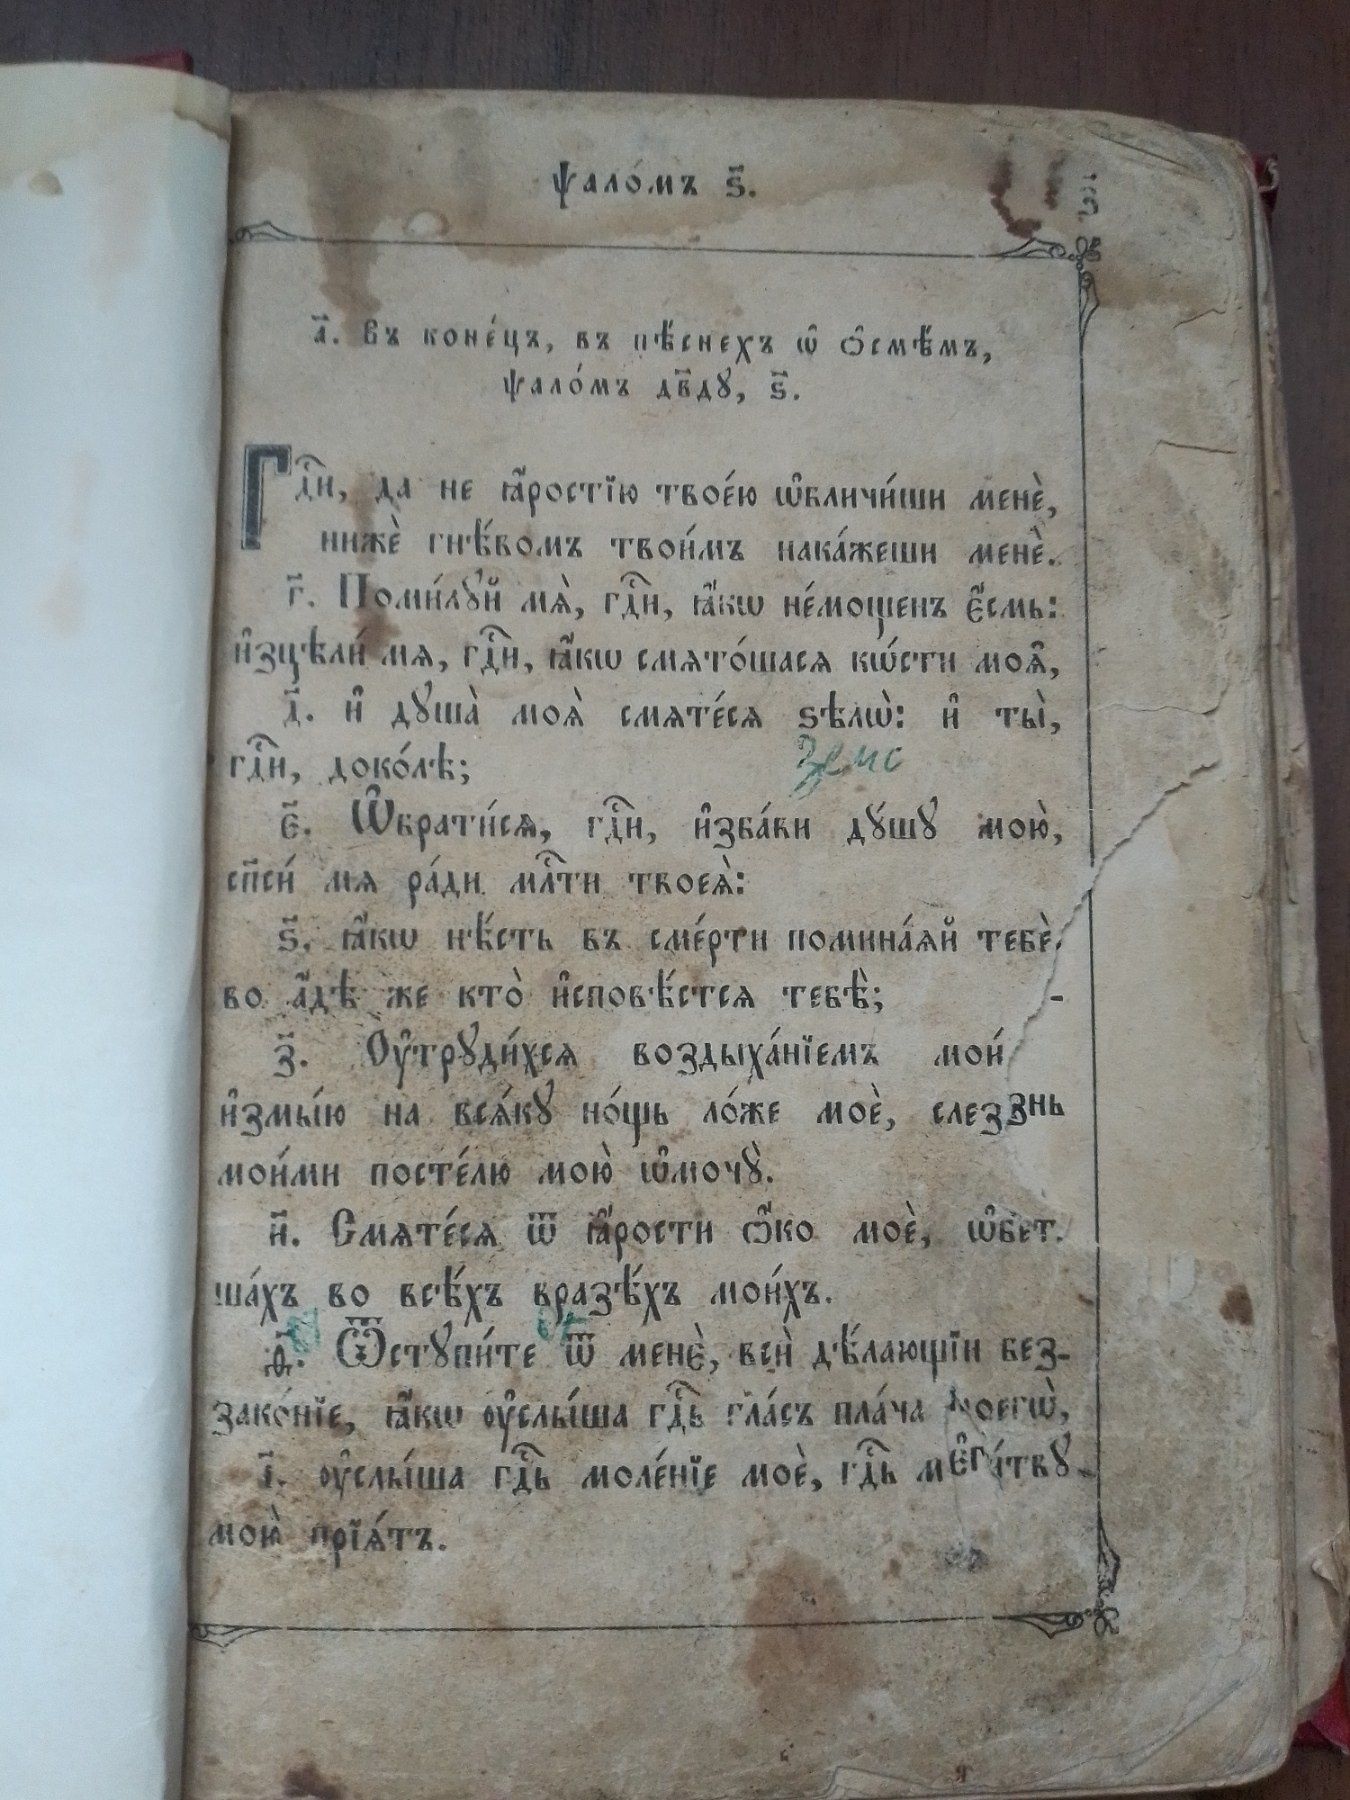 Ѱало́мъ ѕ҃.
а҃. Въ коне́цъ, въ пѣ́снехъ ѡ҆ ѻ҆смѣ́мъ,
ѱало́мъ дв҃дꙋ, ѕ҃.
Гдⷭ҇и, да не ꙗ҆́ростїю твое́ю ѡ҆бличи́ши менѐ,
нижѐ гнѣ́вомъ твои́мъ нака́жеши менѐ.
г҃. Поми́лꙋй мѧ̀, гдⷭ҇и, ꙗ҆́кѡ не́мощенъ є҆́смь:
и҆зцѣли́ мѧ, гдⷭ҇и, ꙗ҆́кѡ смѧто́шасѧ кѡ́сти моѧ̑,
д҃. и҆ дꙋша̀ моѧ̀ смѧте́сѧ ѕѣлѡ̀: и҆ ты̀,
гдⷭ҇и, доко́лѣ;
земс
є҃. Ѡ҆брати́сѧ, гдⷭ҇и, и҆зба́ви дꙋ́шꙋ мою̀,
сп҃си́ мѧ ра́ди млⷭ҇ти твоеѧ̀:
ѕ҃. ꙗ҆́кѡ нѣ́сть въ сме́рти помина́ѧй тебѐ.
во а҆́дѣ же кто̀ и҆сповѣ́стсѧ тебѣ̀; -
з҃. Оу҆трꙋди́хсѧ воздыха́нїемъ мои́
и҆змы́ю на всѧ́кꙋ но́щь ло́же моѐ, слеззнь
мои́ми посте́лю мою̀ ѡ҆мочꙋ̀.
и҃. Смѧте́сѧ ѿ ꙗ҆́рости ѻ҆́ко моѐ, ѡ҆бет.
ша́хъ во всѣ́хъ вразѣ́хъ мои́хъ.
ѳ҃. Ѿстꙋпи́те ѿ менє̀, всѝ дѣ́лающїи без-
зако́нїе, ꙗ҆́кѡ оу҆слы́ша гдⷭ҇ь гла́съ пла́ча моегѡ̀,
і҃. оу҆слы́ша гдⷭ҇ь моле́нїе моѐ, гдⷭ҇ь
мою̀ прїѧ́тъ.